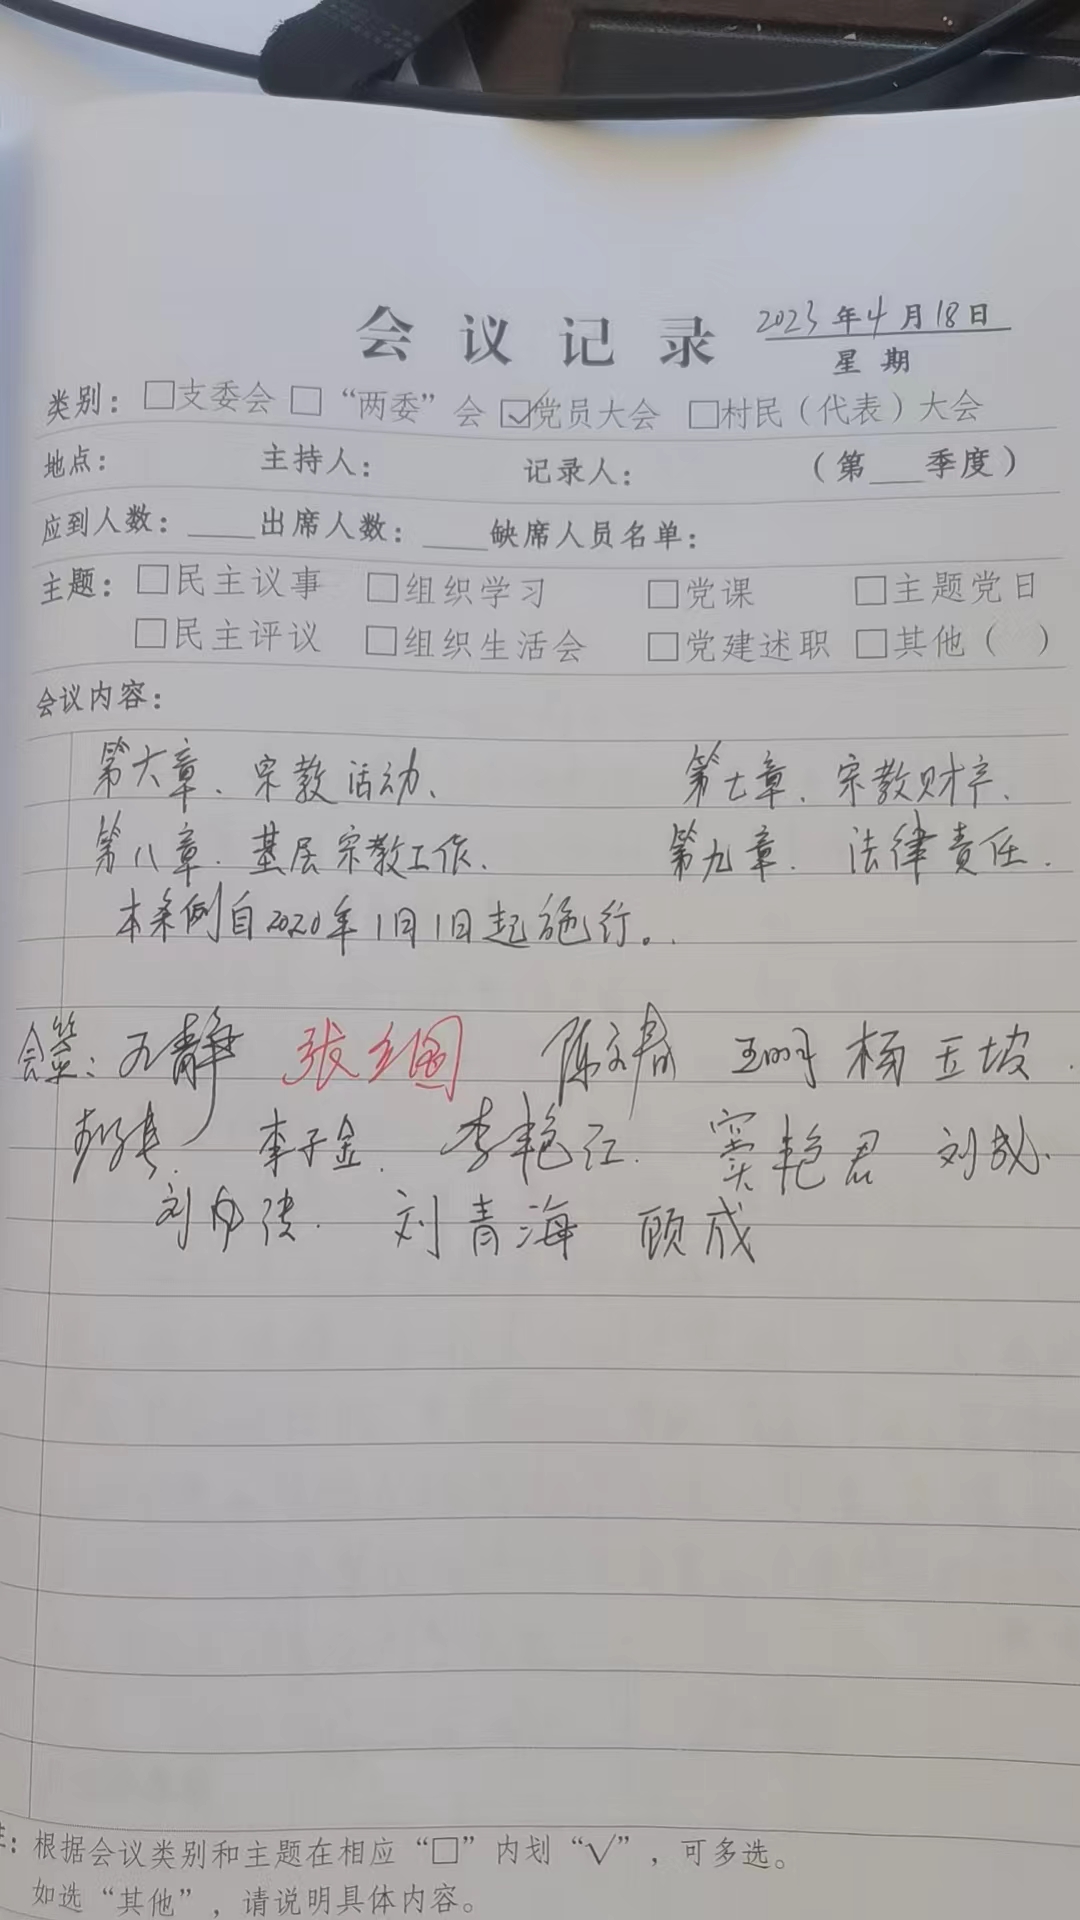 会议记录 2023年4月18日
星期
类别：□支委会 □“两委”会 ☑党员大会 □村民（代表）大会
地点： 主持人： 记录人： （第___季度）
应到人数：____出席人数：____缺席人员名单：
主题：□民主议事 □组织学习 □党课 □主题党日
□民主评议 □组织生活会 □党建述职 □其他（ ）
会议内容：
第六章、宗教活动、 第七章、宗教财产、
第八章、基层宗教工作、 第九章、法律责任.
本条例自2020年1月1日起施行。
会签：静 张 陈文春 王 杨玉坡
李子金. 李艳红. 窦艳君 刘成.
刘 刘青海 顾成
注：根据会议类别和主题在相应“□”内划“√”，可多选。
如选“其他”，请说明具体内容。